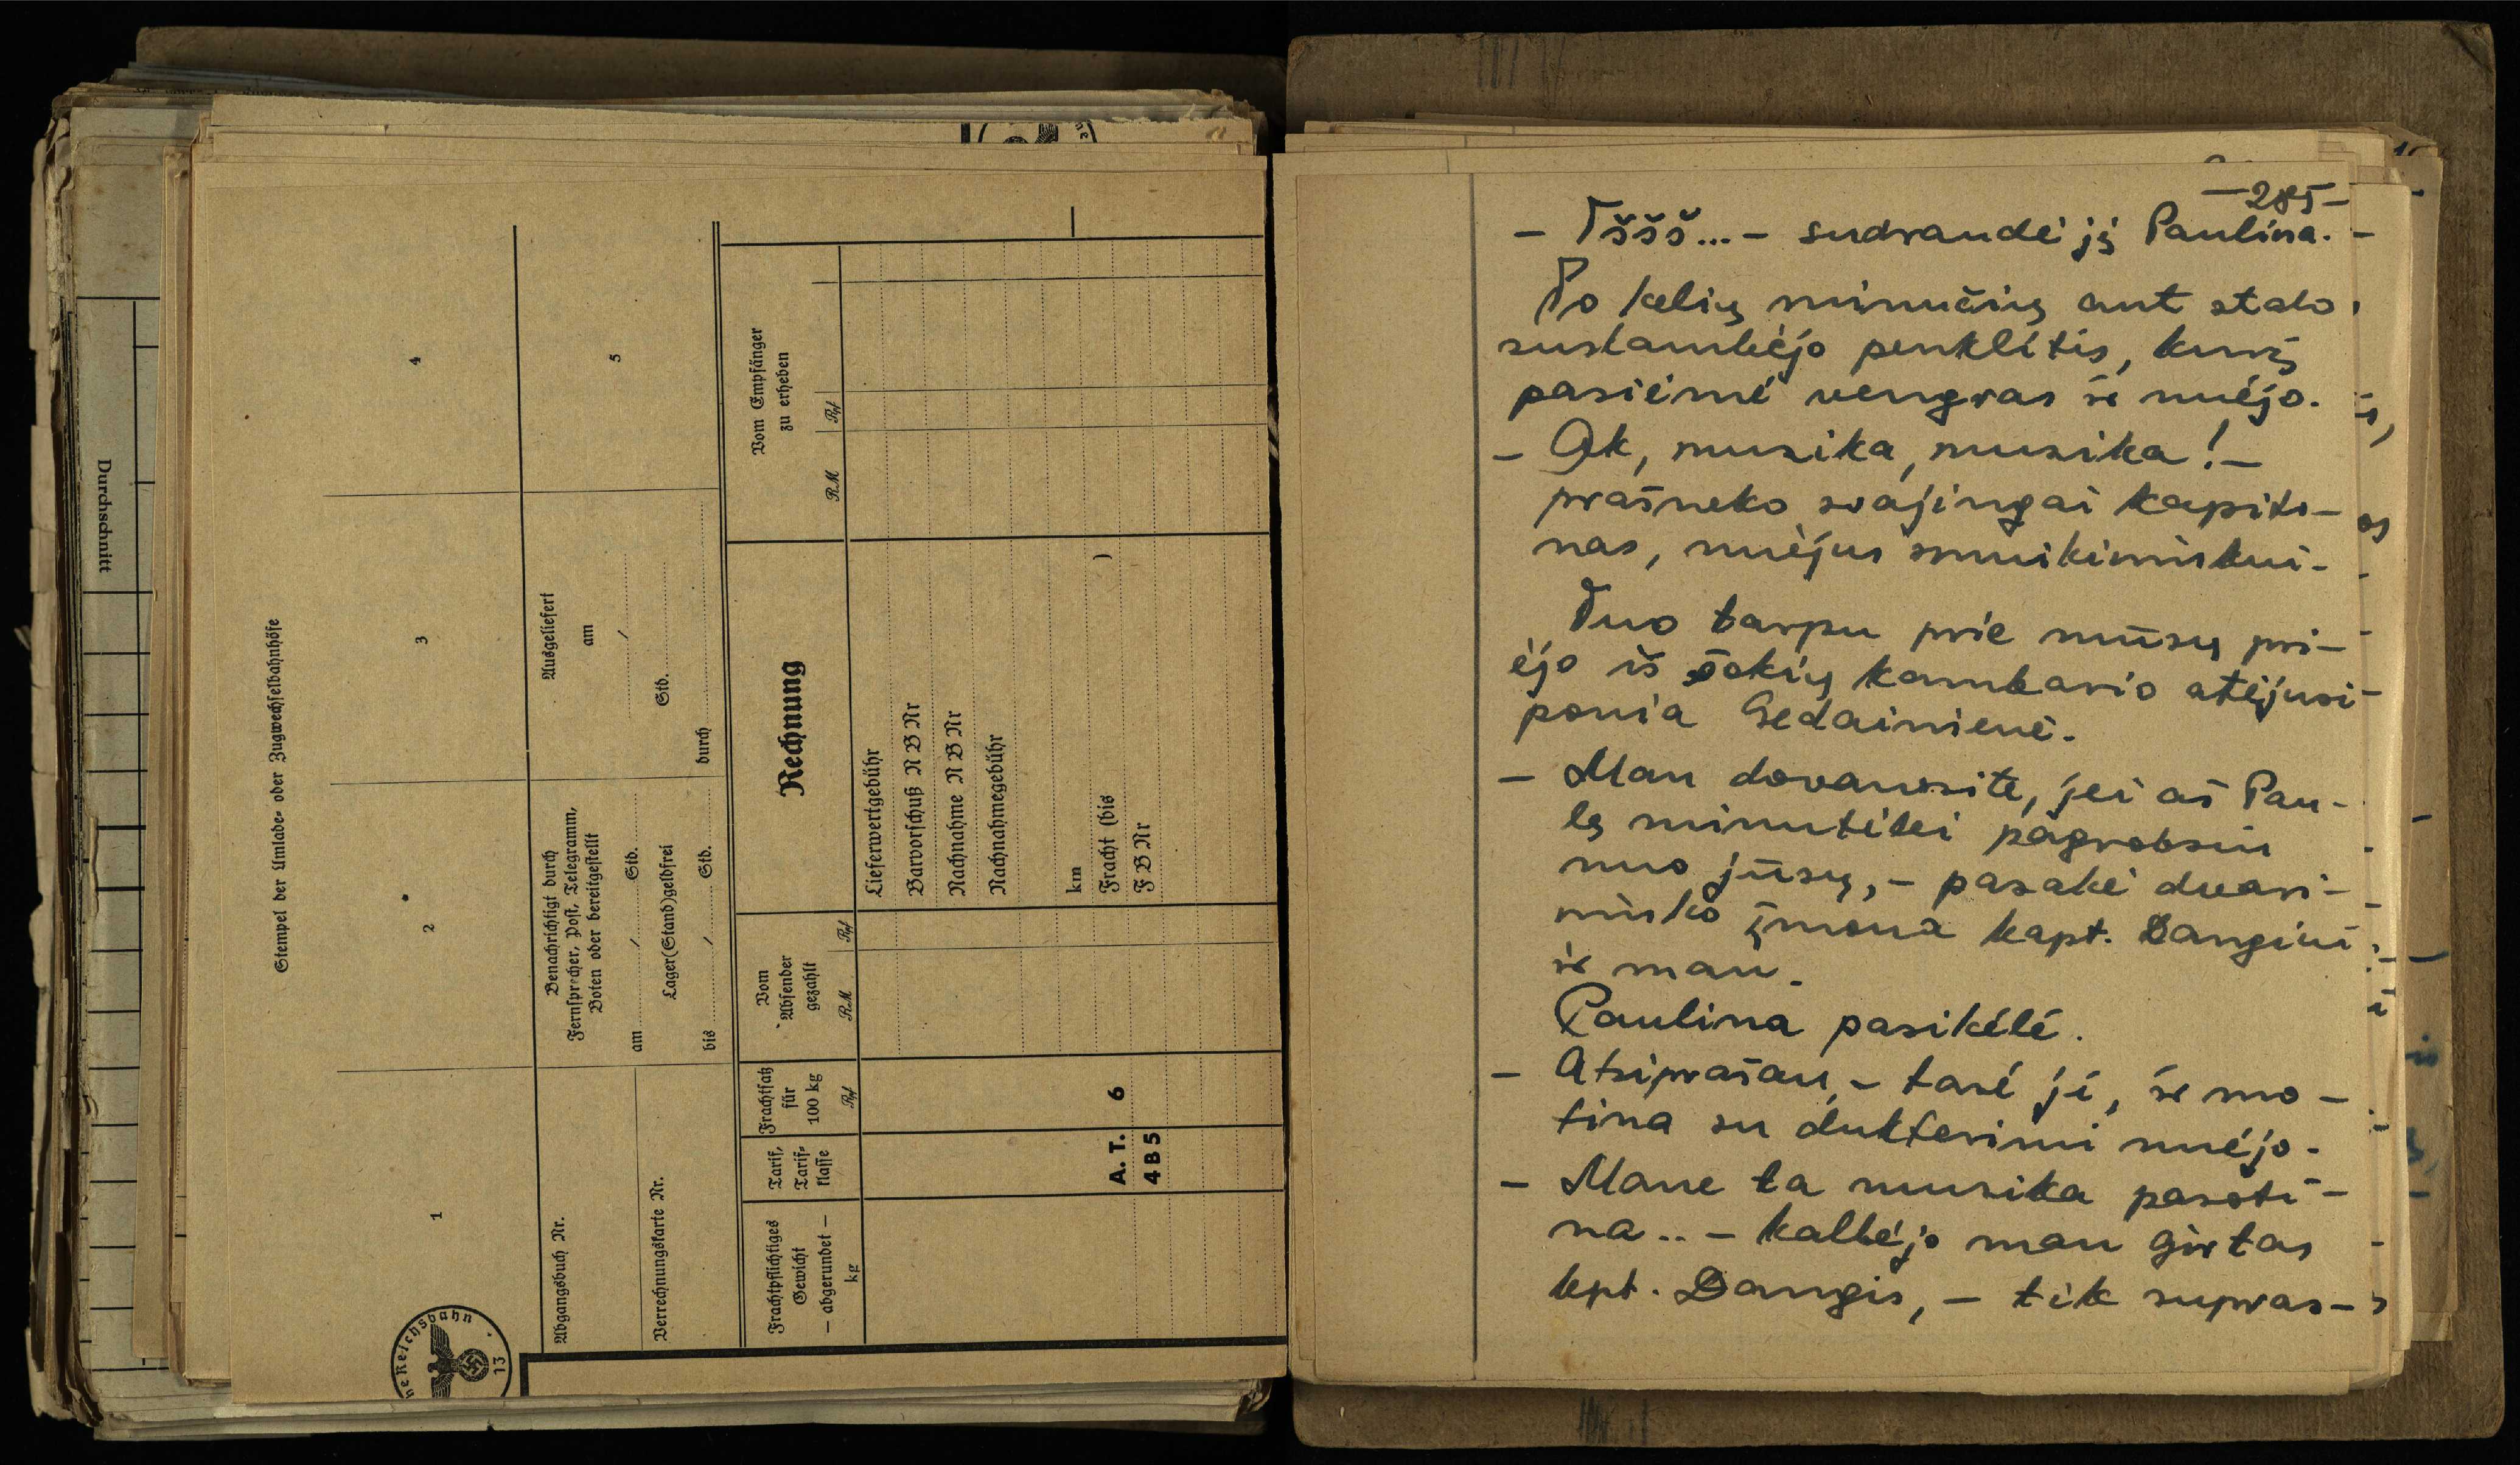 Durchschnitt
Stempel der Umlade- oder Zugwechselbahnhöfe
1
2
3
4
Abgangsbuch Nr.
Verrechnungskarte Nr.
Benachrichtigt durch
Fernsprecher, Post, Telegramm,
Boten oder bereitgestellt
am / Std.
Lager(Stand)geldfrei
bis / Std.
Ausgeliefert
am
/
Std.
durch
5
Frachtpflichtiges
Gewicht
— abgerundet —
kg
Tarif,
Tarif-
klasse
Frachtsatz
für
100 kg
Rpf
Vom
Absender
gezahlt
RM Rpf
Rechnung
Vom Empfänger
zu erheben
RM Rpf
Lieferwertgebühr
Barvorschuß N B Nr
Nachnahme N B Nr
Nachnahmegebühr
km
A. T. 6 Fracht (bis )
4 B 5 F B Nr
ne Reichsbahn
13
—285—
— Tššš... — sudraudė jį Paulina.
Po kelių minučių ant stalo
suskambėjo penklitis, kurį
pasiėmė vengras ir nuėjo.
— Ak, muzika, muzika! —
prašneko svajingai kapito-
nas, nuėjus smuikininkui.
Tuo tarpu prie mūsų pri-
ėjo iš šokių kambario atėjusi
ponia Gedainienė.
— Man dovanosite, jei aš Pau-
lę minutėlei pagrobsiu
nuo jūsų, — pasakė dvari-
ninko žmona kapt. Dangiui
ir man.
Paulina pasikėlė.
— Atsiprašau, — tarė ji, ir mo-
tina su dukterimi nuėjo.
— Mane ta muzika pasoti-
na.. — kalbėjo man girtas
kpt. Dangis, — tik supras-